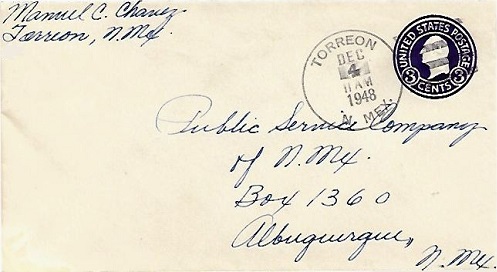 Manuel C. Chavez
Torreon, N. Mex.
TORREON
DEC
4
11 AM
1948
N. MEX.
UNITED STATES POSTAGE
3 CENTS 3
Public Service Company
of N. Mex.
Box 1360
Albuquerque,
N. Mex.